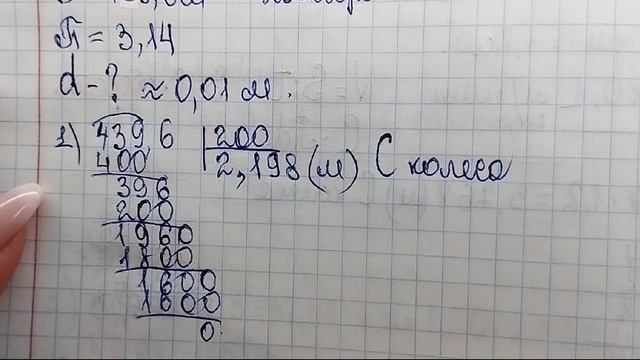 π = 3,14
d - ? ≈ 0,01 м.
1) 439,6 | 200
400 2,198 (м) С колеса
396
200
1960
1800
1600
1600
0